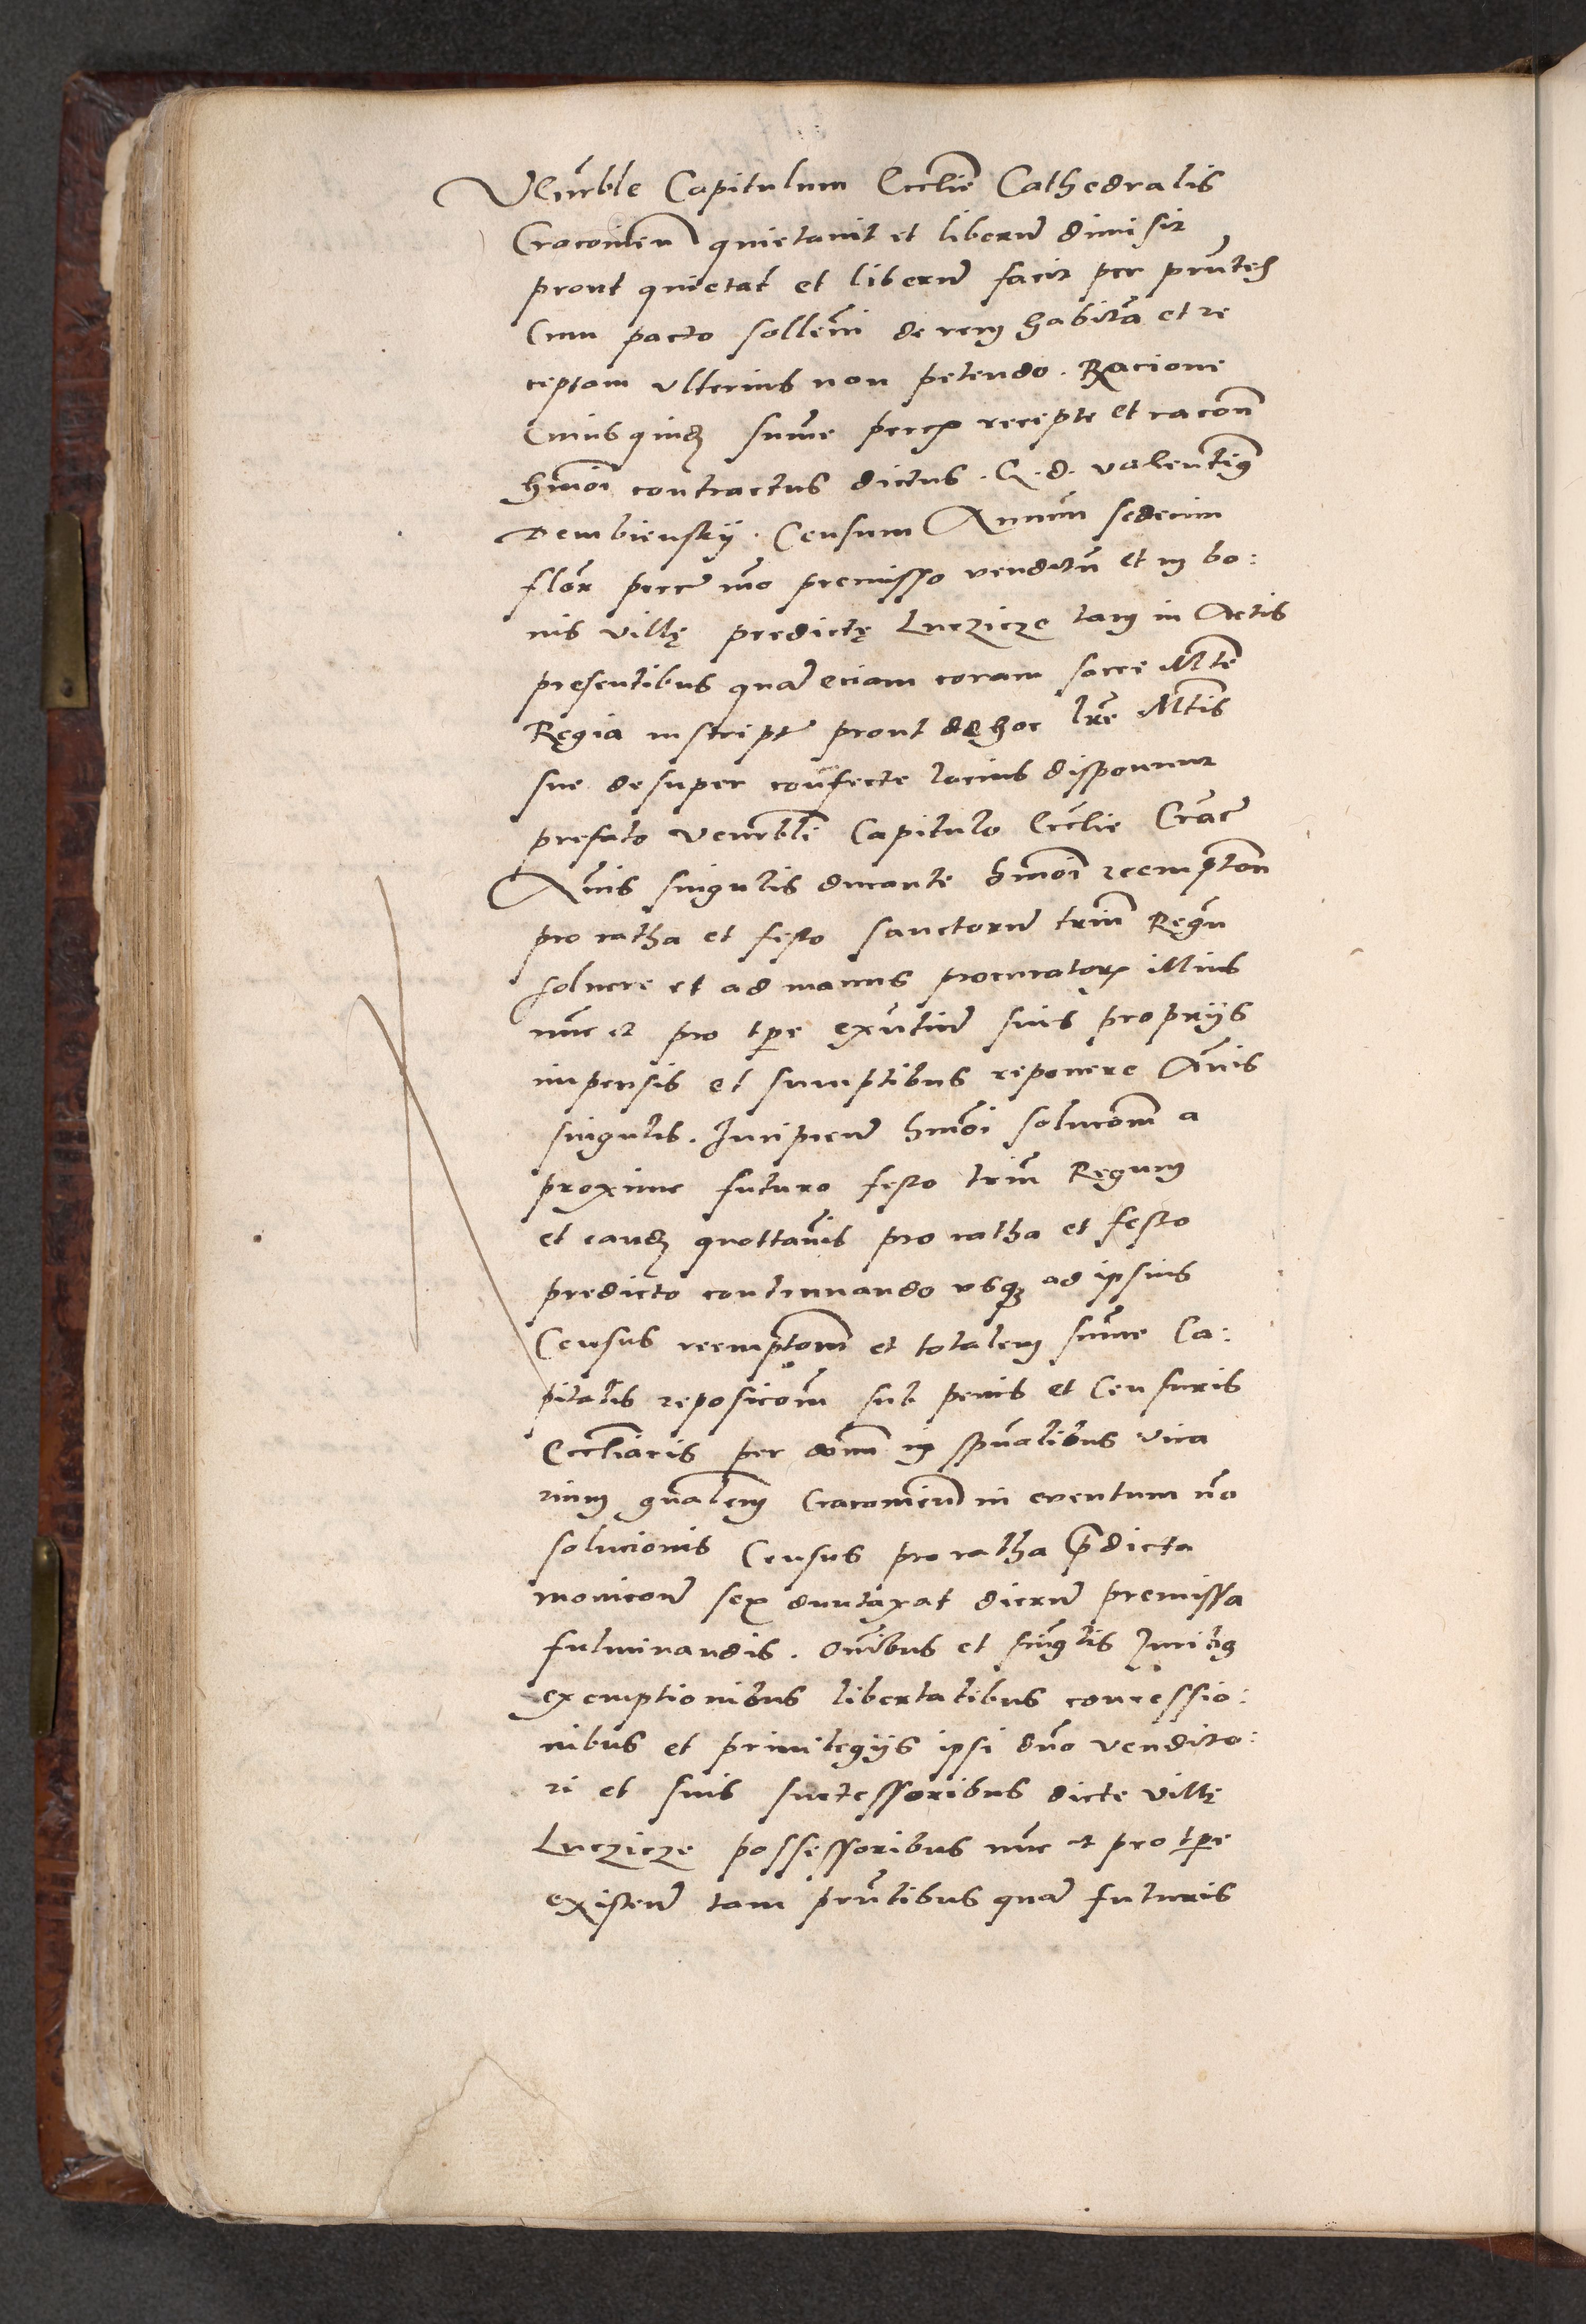 Venrble Capitulum Ecclie Cathedralis
Cracovien quietavit et liberum dimisit
prout quietat et liberum facit per prntes
Cum pacto sollemi de rem habitam et re
ceptam ulterius non petendo. Racione
Cuiusquidem summe pecce recepte et racone
hmoi contractus dictus. G. d. valentinus
Dembiensky. Censum Annuum sedecim
flor pecce mo premisso venditum et in bo:
nis villę predictę Luczicze tam in Actis
presentibus quam eciam coram sacre Mte
Regia inscriptum prout de hoc lre Mtis
sue desuper confecte lacius disponunt
prefato venrbli Capitulo Ecclie Crac
Annis singulis durante hmoi reemptone
pro ratha et festo sanctorum trium Regum
solvere et ad manus procuratorum illius
nunc et pro tpe exntium suis proprijs
impensis et sumptibus reponere Annis
singulis. Incipiendo hmoi solucionem a
proxime futuro festo trium Regum
et eandem quottannis pro ratha et festo
predicto continuando usque ad ipsius
Census reemptionem et totalem summe Ca:
pitalis reposicionem sub penis et Censuris
Ecclesiacis per dnum in spualibus vica
rium gnalem Cracovien in eventum non
solucionis Census pro ratha predicta
monicone sex duntaxat dierum premissa
fulminandis. Omnibus et singulis Juribus
exemptionibus libertatibus concessio:
nibus et privilegijs ipsi dno vendito:
ri et suis successoribus dicte villę
Luczicze possessoribus nunc et pro tpe
existen tam prntibus quam futuris